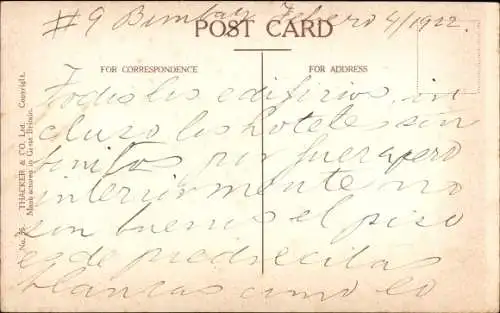 #9 Bombay Febrero 4/1922.
POST CARD
FOR CORRESPONDENCE
FOR ADDRESS
Todos los edificios, in
cluso los hoteles son
bonitos por fuera pero
interiormente no
son buenos el piso
es de piedrecitas
blancas como lo
No. 36. THACKER & CO. Ltd. Copyright.
Manufactured in Great Britain.